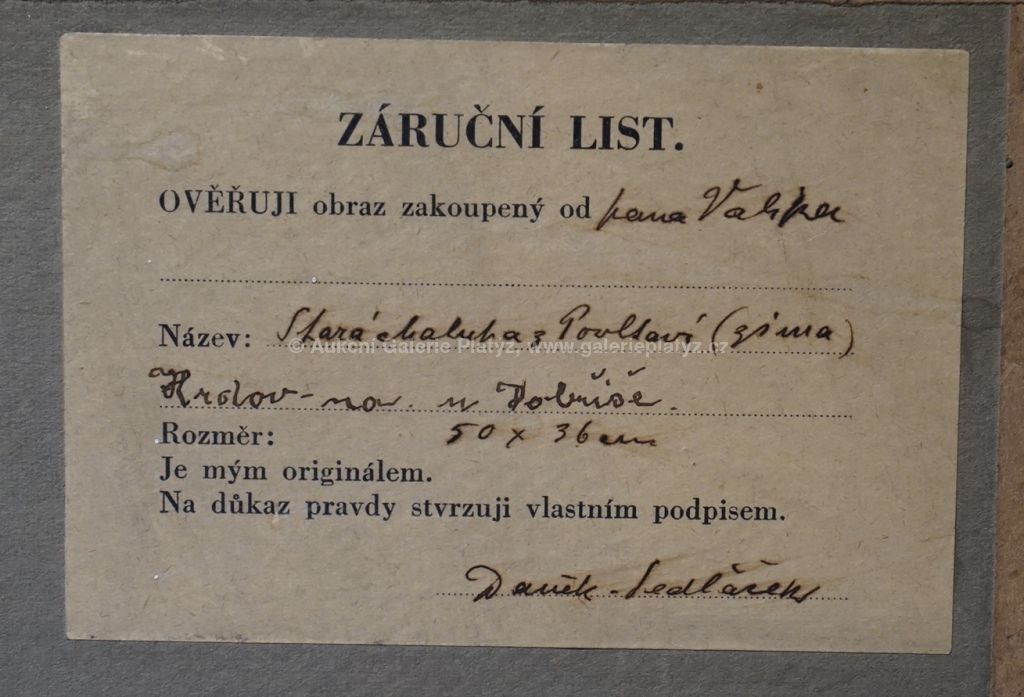 ZÁRUČNÍ LIST.
OVĚŘUJI obraz zakoupený od pana
Název: Stará chalupa z Povltaví (zima)
© Aukční Galerie Platýz, www.galerieplatyz.cz
u Dobříše.
Rozměr: 50 x 36 cm
Je mým originálem.
Na důkaz pravdy stvrzuji vlastním podpisem.
Daněk-Sedláček